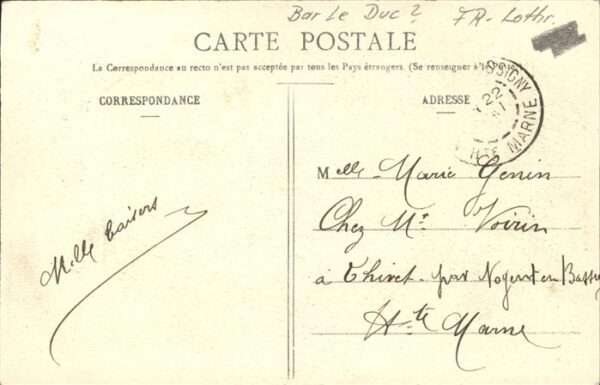 Bar Le Duc? FR-Lothr.
CARTE POSTALE
La Correspondance au recto n'est pas acceptée par tous les Pays étrangers. (Se renseigner à
CORRESPONDANCE
ADRESSE
OSSIGNY
22
HTE MARNE
Melle Marie Genin
Chez Mr Voirin
à Thivet par Nogent en Bassi
Hte Marne
Mille baisers